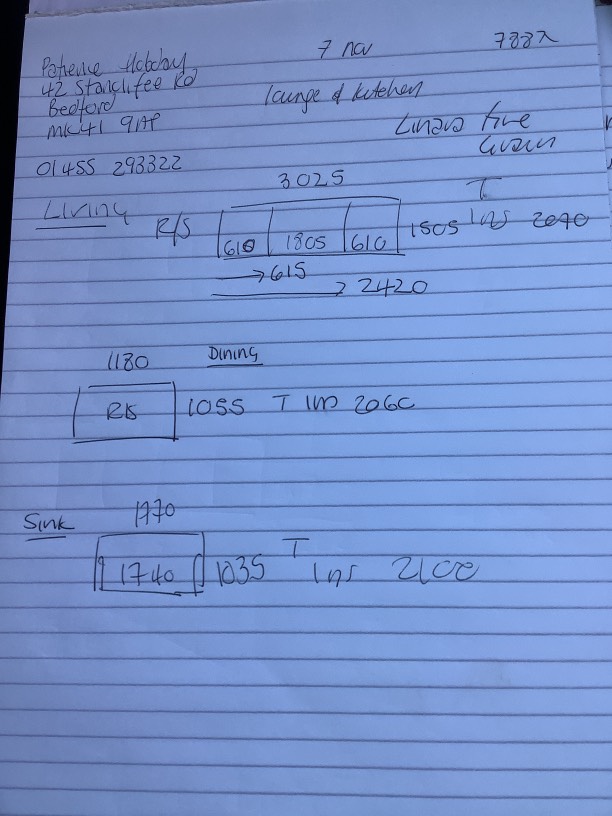 7 nov 788λ
Patience Hobday
42 Stanclifee Rd
Bedford
MK41 9AP
lounge & kitchen
Linara fire
01455 293322
3025
Living
R/S 610 1805 610 1505 T Ins 2070
→ 615
→ 2420
1180 Dining
R/S 1055 T Ins 2060
Sink 1770
1740 1035 T Ins 2100